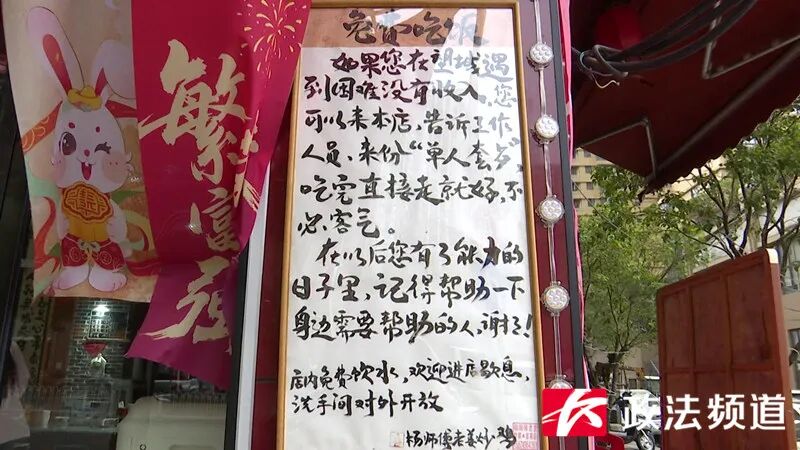 免费吃饭
如果您在望城遇
到困难没有收入,您
可以来本店,告诉工作
人员,来份“单人套餐”,
吃完直接走就好,不
必客气。
在以后您有了能力的
日子里,记得帮助一下
身边需要帮助的人,谢了!
店内免费饮水,欢迎进店歇息,
洗手间对外开放
杨师傅老姜炒鸡
繁富强
政法频道